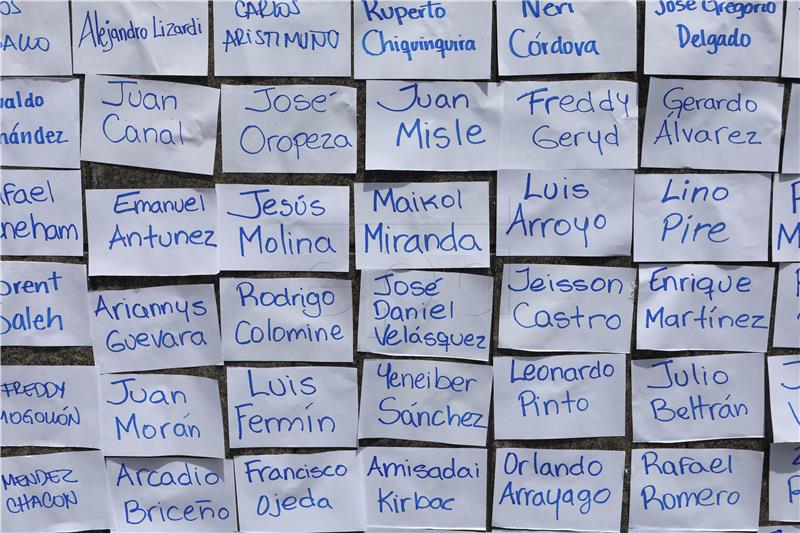 Alejandro Lizardi
CARLOS
ARISTIMUÑO
Ruperto
Chiquinquira
Neri
Córdova
José Gregorio
Delgado
Juan
Canal
José
Oropeza
Juan
Misle
Freddy
Geryd
Gerardo
Álvarez
Emanuel
Antunez
Jesús
Molina
Maikol
Miranda
Luis
Arroyo
Lino
Pire
Ariannys
Guevara
Rodrigo
Colomine
José
Daniel
Velásquez
Jeisson
Castro
Enrique
Martínez
FREDDY
MOGOLLÓN
Juan
Morán
Luis
Fermín
Yeneiber
Sánchez
Leonardo
Pinto
Julio
Beltrán
MENDEZ
CHACON
Arcadio
Briceño
Francisco
Ojeda
Amisadai
Kirbac
Orlando
Arrayago
Rafael
Romero